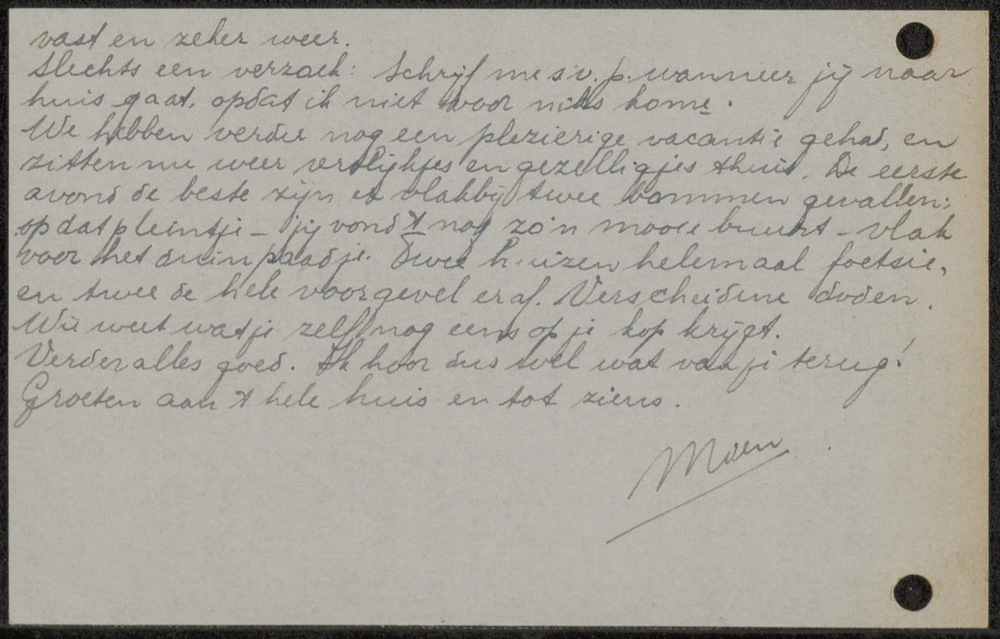 vast en zeker weer.
Slechts een verzoek: Schrijf me s.v.p. wanneer jij naar
huis gaat, opdat ik niet voor niks kome.
We hebben verder nog een plezierige vacantie gehad, en
zitten nu weer en gezelligjes thuis. De eerste
avond de beste zijn er vlakbij twee bommen gevallen:
op dat pleintje – jij vond 't nog zo'n mooie buurt – vlak
voor het duinpaadje. Twee huizen helemaal foetsie,
en twee de hele voorgevel eraf. Verscheidene doden.
Wie weet wat je zelf nog eens op je kop krijgt.
Verder alles goed. Ik hoor dus wel wat van je terug!
Groeten aan 't hele huis en tot ziens.